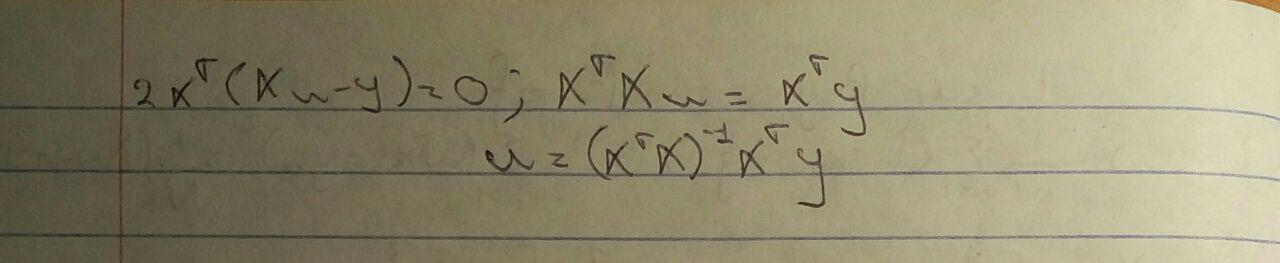 2X^T(Xu-y)=0; X^TXu = X^Ty
u = (X^TX)^-1X^Ty